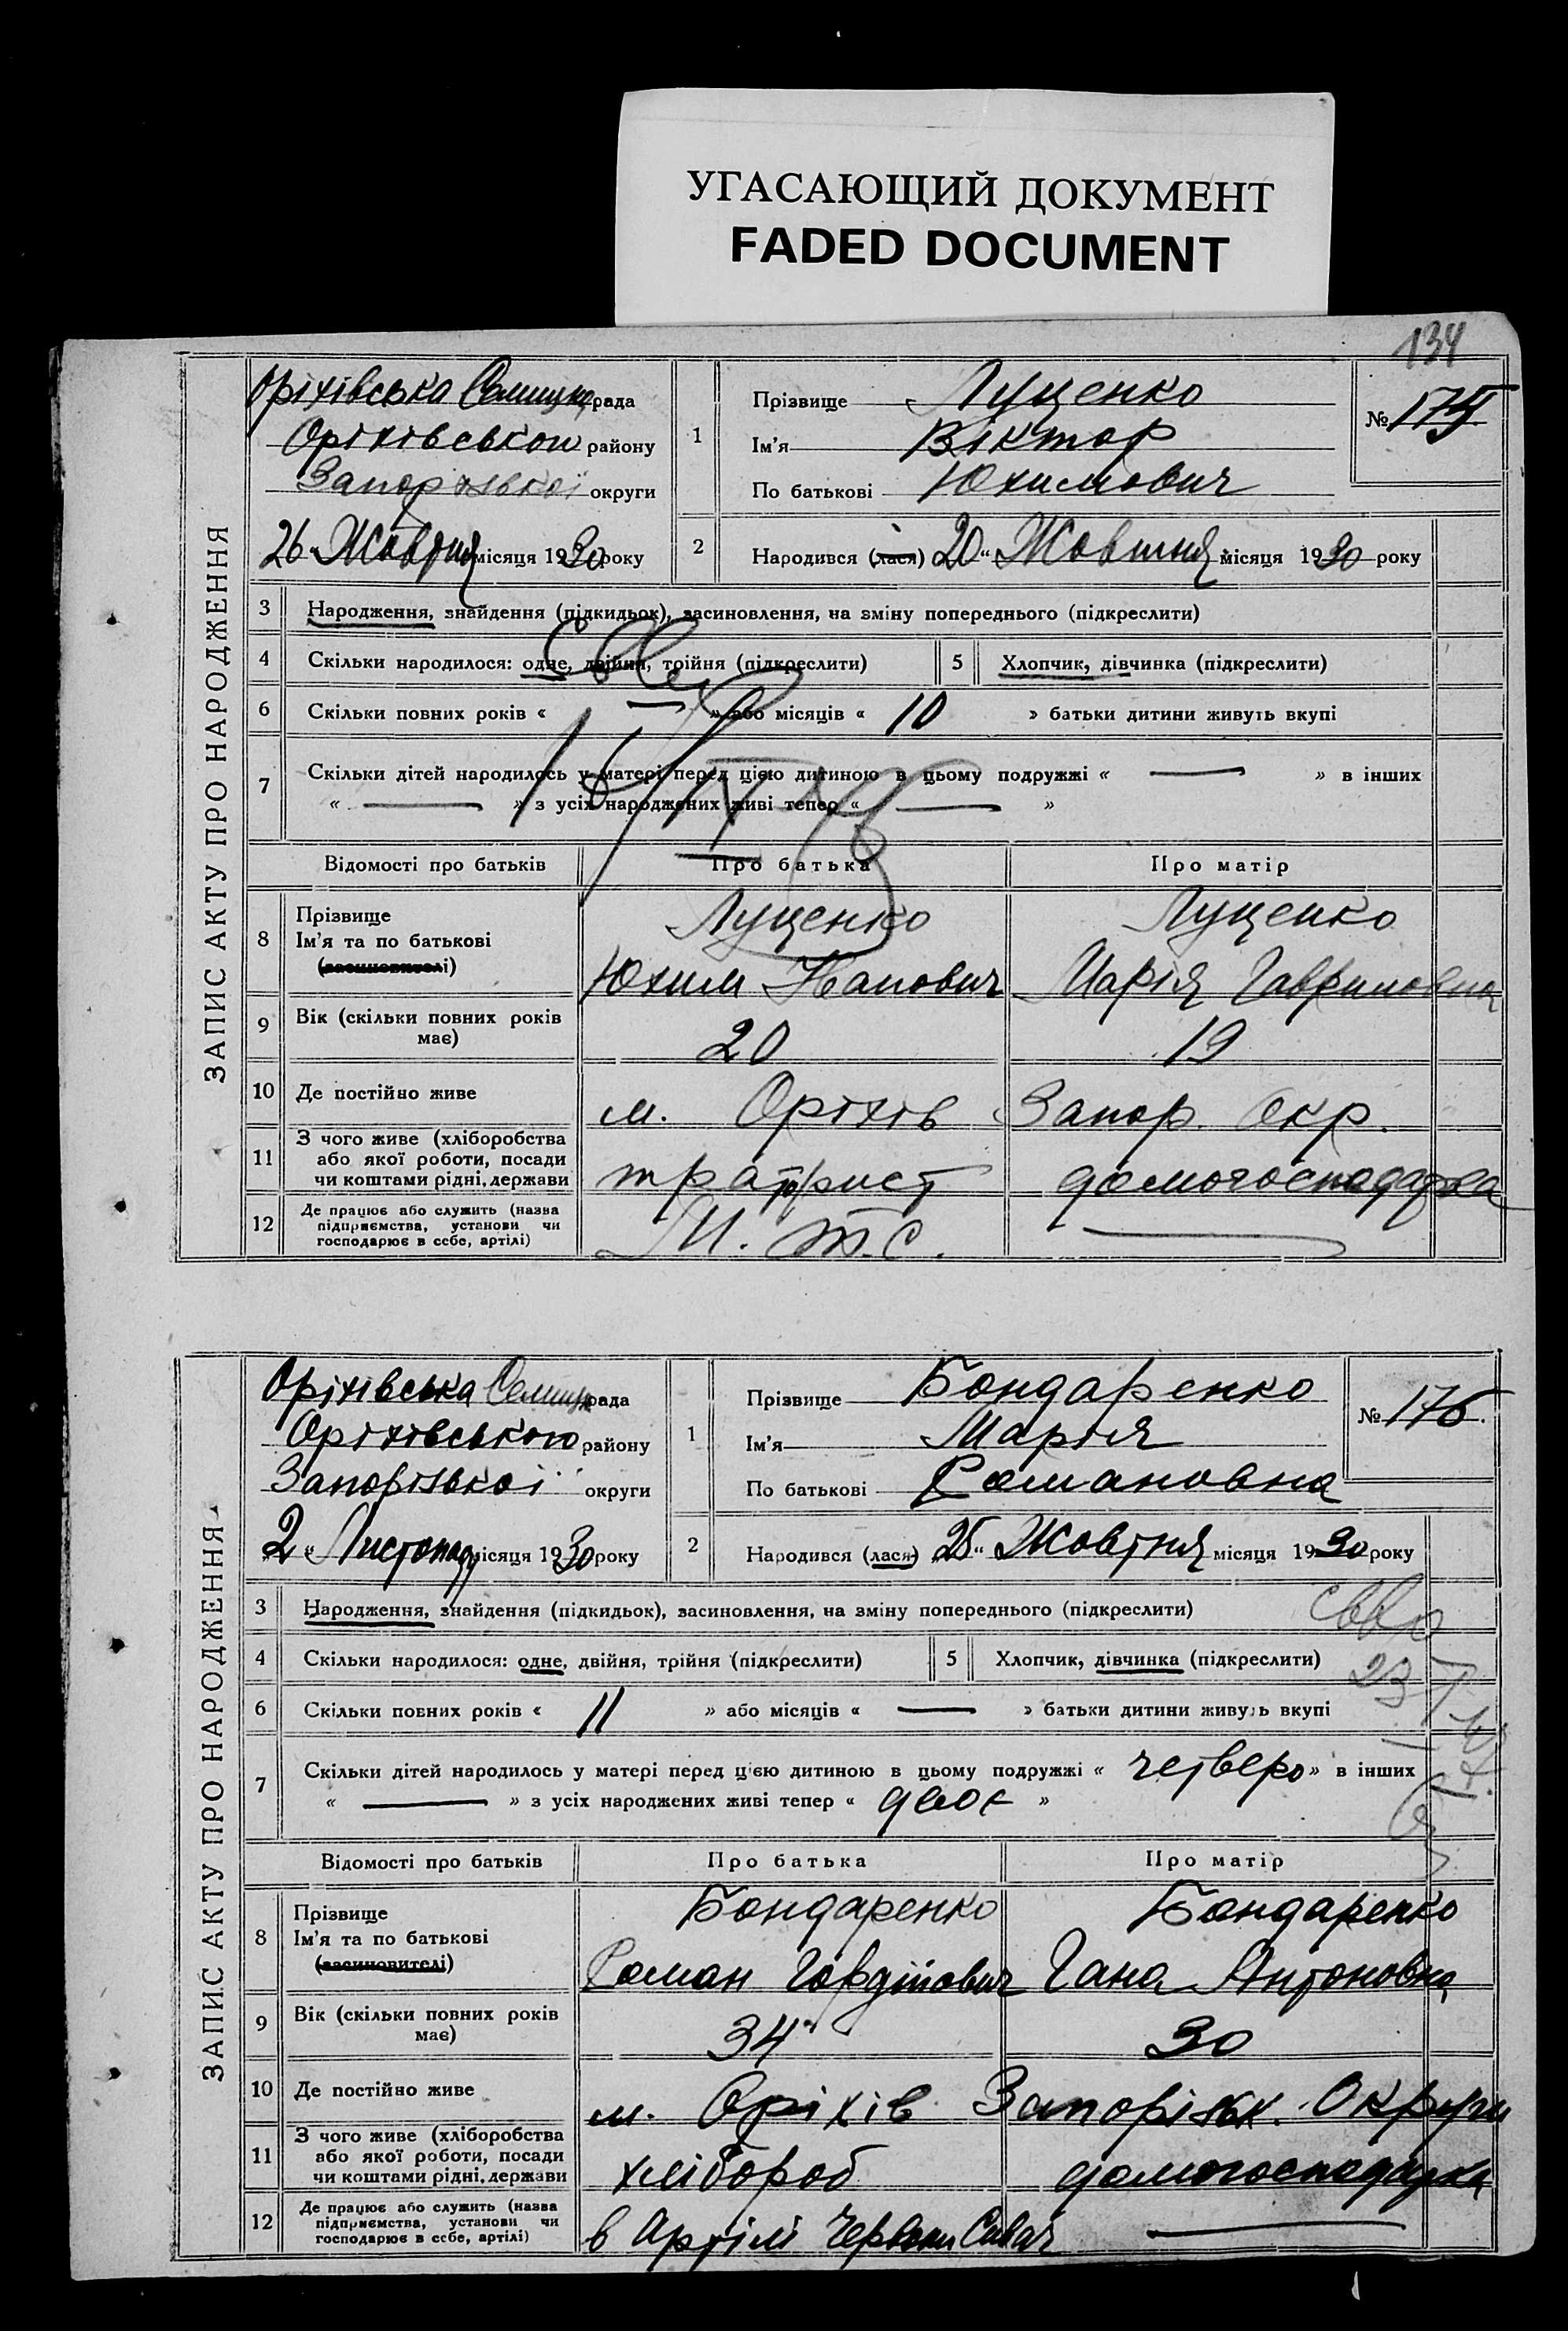 УГАСАЮЩИЙ ДОКУМЕНТ
FADED DOCUMENT
134
ЗАПИС АКТУ ПРО НАРОДЖЕННЯ
Оріхівська Селищна рада
Оріхівського району
Запорізької округи
26 Жовтня місяця 1930 року
1
Прізвище Луценко
Ім'я Віктор
По батькові Юхимович
№ 175
2
Народився (лася) 20 „ Жовтня місяця 1930 року
3 Народження, знайдення (підкидьок), засиновлення, на зміну попереднього (підкреслити)
4 Скільки народилося: одне, двійня, трійня (підкреслити) 5 Хлопчик, дівчинка (підкреслити)
6 Скільки повних років « — » або місяців « 10 » батьки дитини живуть вкупі
7 Скільки дітей народилось у матері перед цією дитиною в цьому подружжі « — » в інших
« — » з усіх народжених живі тепер « — »
Відомості про батьків Про батька Про матір
8 Прізвище
Ім'я та по батькові
(засиновителі)
Луценко Луценко
Юхим Марія Гавриловна
9 Вік (скільки повних років має) 20 19
10 Де постійно живе м. Оріхів Запор. Окр.
11 З чого живе (хліборобства
або якої роботи, посади
чи коштами рідні, держави
домогосподарка
12 Де працює або служить (назва
підприємства, установи чи
господарює в себе, артілі)
М. Т. С. —
ЗАПИС АКТУ ПРО НАРОДЖЕННЯ
Оріхівська Селищн рада
Оріхівського району
Запорізької округи
2 „ Листопад місяця 1930 року
1
Прізвище Бондаренко
Ім'я Марія
По батькові Романовна
№ 176
2
Народився (лася) 25 „ Жовтня місяця 1930 року
3 Народження, знайдення (підкидьок), засиновлення, на зміну попереднього (підкреслити)
4 Скільки народилося: одне, двійня, трійня (підкреслити) 5 Хлопчик, дівчинка (підкреслити)
6 Скільки повних років « 11 » або місяців « — » батьки дитини живуть вкупі
7 Скільки дітей народилось у матері перед цією дитиною в цьому подружжі « четверо » в інших
« — » з усіх народжених живі тепер « двоє »
Відомості про батьків Про батька Про матір
8 Прізвище
Ім'я та по батькові
(засиновителі)
Бондаренко Бондаренко
Роман Гордійович Гана Антоновна
9 Вік (скільки повних років має) 34 30
10 Де постійно живе м. Оріхів Запорізьк. Округи
11 З чого живе (хліборобства
або якої роботи, посади
чи коштами рідні, держави
хлібороб домогосподарка
12 Де працює або служить (назва
підприємства, установи чи
господарює в себе, артілі)
в Артілі Червоний Сивач —